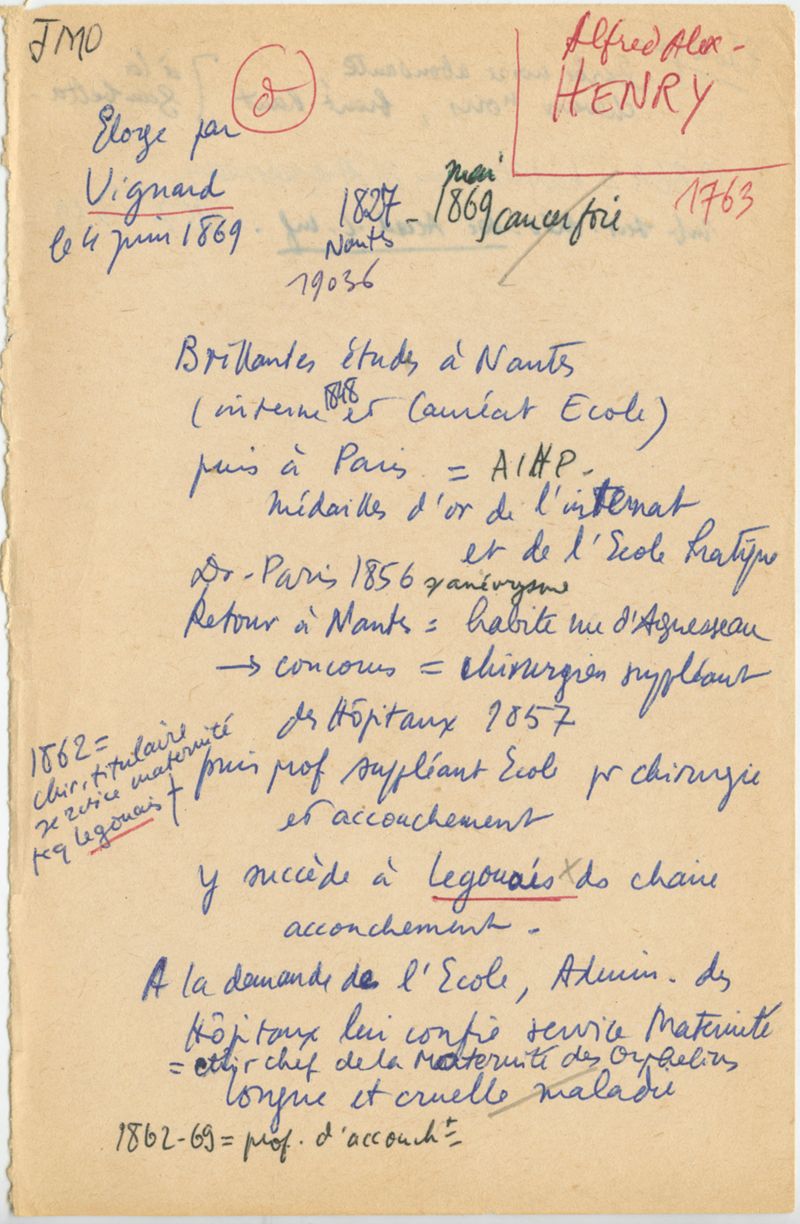 JMO
d
Alfred Alex-
HENRY
1763
Eloge par
Vignard
le 4 juin 1869
1827 - mai 1869 cancer foie
Nantes
19036
Brillantes études à Nantes
(interne 1848 et Lauréat Ecole)
puis à Paris = AIHP -
Médailles d'or de l'internat
et de l'Ecole Pratique
Dr-Paris 1856 anévrysme
Retour à Nantes = habite rue d'Aguesseau
→ concours = chirurgien suppléant
des Hôpitaux 1857
1862 =
chir. titulaire
service maternité
Legouais †
puis prof suppléant Ecole pr chirurgie
et accouchement
y succède à Legouais x ds chaire
accouchement -
A la demande de l'Ecole, Admin. des
Hôpitaux lui confie service Maternité
= chir chef de la Maternité des Orphelins
longue et cruelle maladie
1862-69 = prof. d'accoucht =